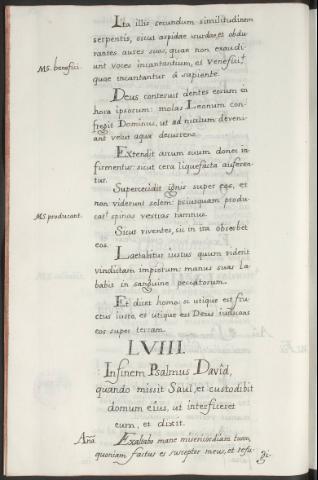 Ira illis secundum similitudinem
serpentis, sicut aspidae surdae, et obdu-
rantes aures suas, quae non exaudi-
MS. benefici. ant voces incantantium, et Venefici,
quae incantantur à sapiente.
Deus conteruit dentes eorum in
hora ipsorum: molas Leonum con-
fregit Dominus, ut ad nichilum deveni-
ant velut aqua decurrens.
Extendit arcum suum donec in-
firmentur: sicut cera liquefacta auferen-
tur.
Supercecidit ignis super eos, et
non viderunt solem: priusquam produ-
MS. producant. cat spinas vestras ramnus.
Sicut viventes, sic in ira obsorbet
eos.
Laetabitur iustus quum viderit
vindictam impiorum: manus suas la-
babit in sanguine peccatorum.
Et dicet homo: si utique est fru-
ctus iusto, et utique est Deus iudicans
eos super terram.
LVIII.
In finem Psalmus David,
quando missit Saul, et custodibit
domum eius, ut interficeret
eum, et dixit.
Aña Exaltabo mane misericordiam tuam,
quoniam factus es susceptor meus, et refu-
gi-